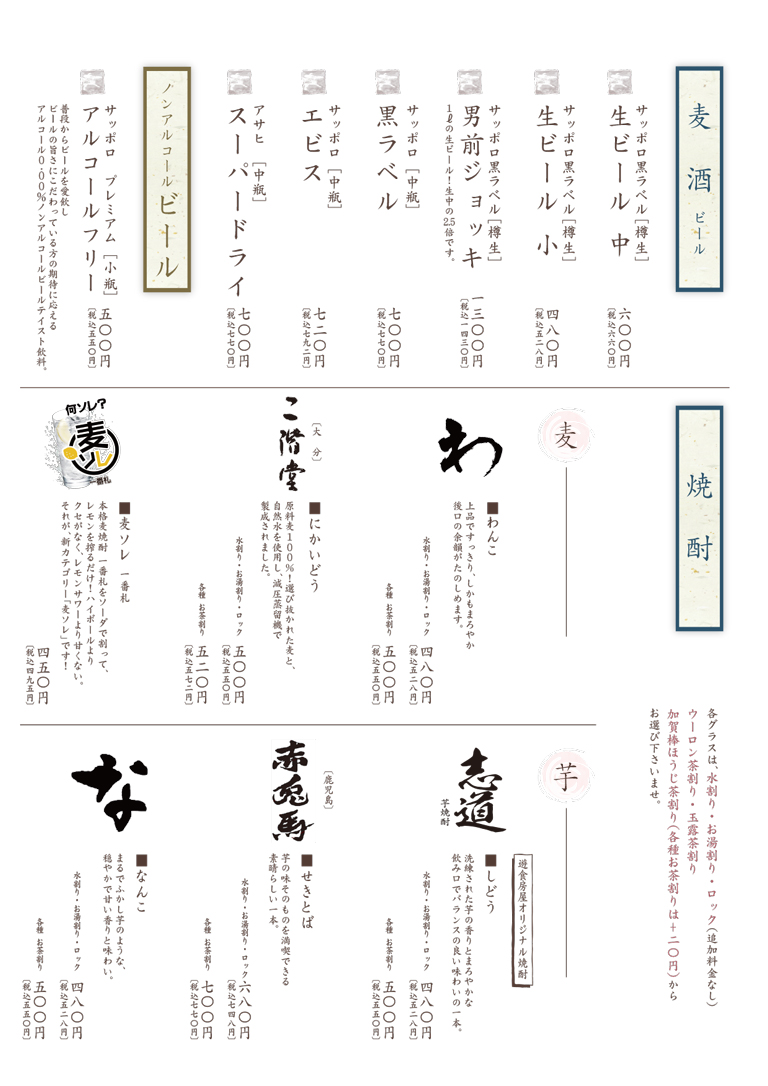 麦酒 ビール
サッポロ黒ラベル[樽生]
生ビール 中
六〇〇円
[税込六六〇円]
サッポロ黒ラベル[樽生]
生ビール 小
四八〇円
[税込五二八円]
サッポロ黒ラベル[樽生]
男前ジョッキ
1ℓの生ビール!生中の2.5倍です。
一三〇〇円
[税込一四三〇円]
サッポロ[中瓶]
黒ラベル
七〇〇円
[税込七七〇円]
サッポロ[中瓶]
エビス
七二〇円
[税込七九二円]
アサヒ[中瓶]
スーパードライ
七〇〇円
[税込七七〇円]
ノンアルコールビール
サッポロ プレミアム[小瓶]
アルコールフリー
五〇〇円
[税込五五〇円]
普段からビールを愛飲し
ビールの旨さにこだわっている方の期待に応える
アルコール0.00%ノンアルコールビールテイスト飲料。
焼酎
各グラスは、水割り・お湯割り・ロック(追加料金なし)
ウーロン茶割り・玉露茶割り
加賀棒ほうじ茶割り(各種お茶割りは+二〇円)から
お選び下さいませ。
麦
わ
■わんこ
上品ですっきり、しかもまろやか
後口の余韻がたのしめます。
水割り・お湯割り・ロック
四八〇円
[税込五二八円]
各種 お茶割り
五〇〇円
[税込五五〇円]
[大分]
二階堂
■にかいどう
原料麦100%!選び抜かれた麦と、
自然水を使用し、減圧蒸留機で
製成されました。
水割り・お湯割り・ロック
五〇〇円
[税込五五〇円]
各種 お茶割り
五二〇円
[税込五七二円]
何ソレ?
麦ソレ
一番札
■麦ソレ 一番札
本格麦焼酎 一番札をソーダで割って、
レモンを搾るだけ!ハイボールより
クセがなく、レモンサワーより甘くない。
それが、新カテゴリー「麦ソレ」です!
四五〇円
[税込四九五円]
芋
遊食房屋オリジナル焼酎
志道
芋焼酎
■しどう
洗練された芋の香りとまろやかな
飲み口でバランスの良い味わいの一本。
水割り・お湯割り・ロック
四八〇円
[税込五二八円]
各種 お茶割り
五〇〇円
[税込五五〇円]
[鹿児島]
赤兎馬
■せきとば
芋の味そのものを満喫できる
素晴らしい一本。
水割り・お湯割り・ロック
六八〇円
[税込七四八円]
各種 お茶割り
七〇〇円
[税込七七〇円]
な
■なんこ
まるでふかし芋のような、
穏やかで甘い香りと味わい。
水割り・お湯割り・ロック
四八〇円
[税込五二八円]
各種 お茶割り
五〇〇円
[税込五五〇円]